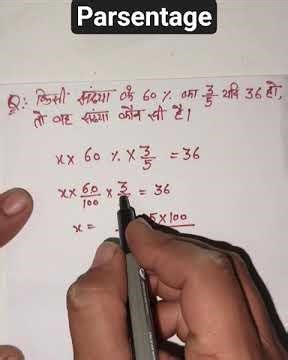 Parsentage
Q:- किसी संख्या के 60% का 3/5 यदि 36 हो,
तो वह संख्या कौन सी है।
x × 60 % × 3/5 = 36
x × 60/100 × 3/ = 36
x = 5×100